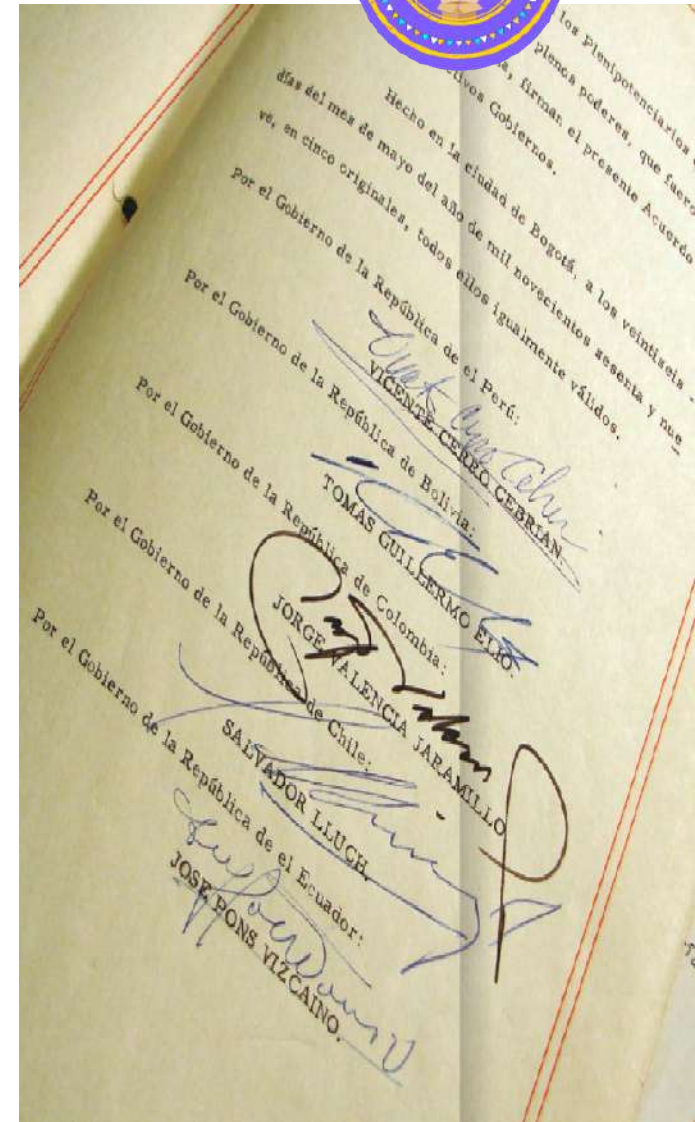 los Plenipotenciarios
plenos poderes, que fuero
firman el presente Acuerdo
tivos Gobiernos.
Hecho en la ciudad de Bogotá, a los veintiseis -
días del mes de mayo del año de mil novecientos sesenta y nue
ve, en cinco originales, todos ellos igualmente válidos.
Por el Gobierno de la República de el Perú:
VICENTE CERRO CEBRIAN.
Por el Gobierno de la República de Bolivia:
TOMAS GUILLERMO ELIO.
Por el Gobierno de la República de Colombia:
JORGE VALENCIA JARAMILLO
Por el Gobierno de la República de Chile:
SALVADOR LLUCH.
Por el Gobierno de la República de el Ecuador:
JOSE PONS VIZCAINO.